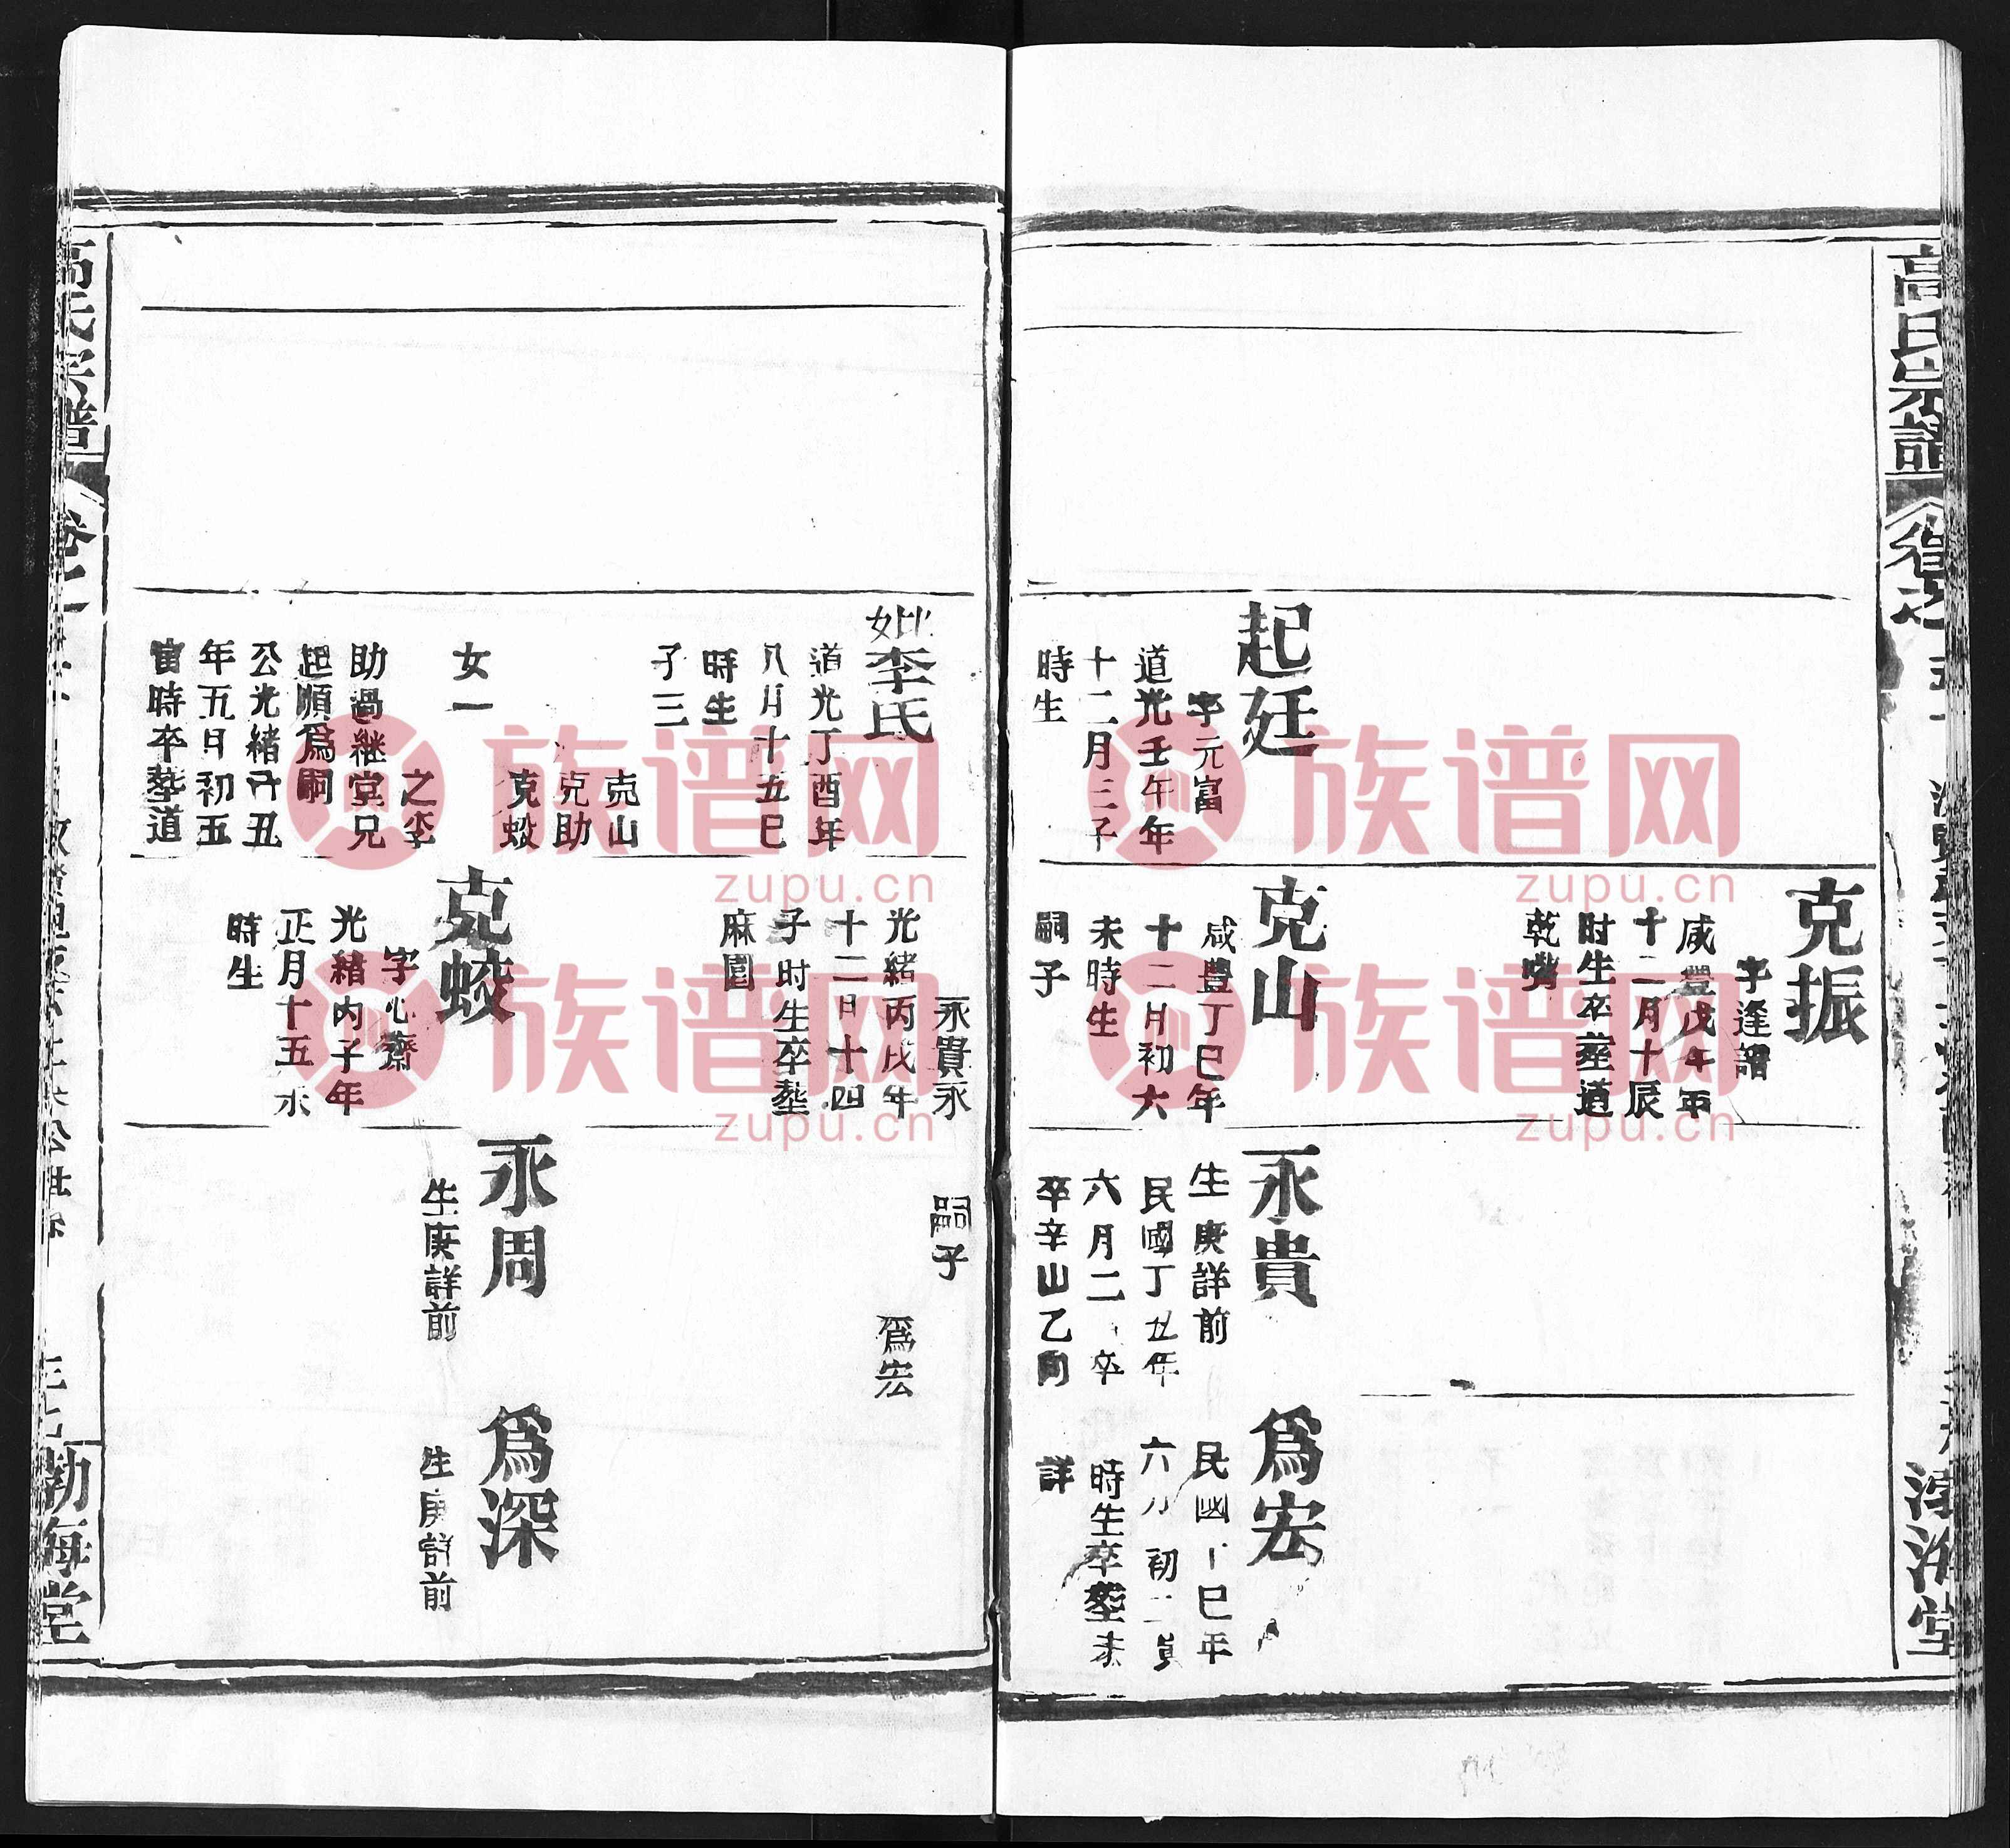 高氏宗譜
起廷
字元富
道光壬午年
十二月三子
時生
克振
字逢譜
咸豐戊午年
十二月十辰
时生卒塟道
乾嘴
克山
咸豐丁巳年
十二月初六
未時生
嗣子
永貴
生庚詳前
民國丁丑年
六月二 卒
卒辛山乙向
爲宏
民國 巳年
時生卒塟未
詳
渤海堂
妣李氏
道光丁酉年
八月十五巳
時生
子三
克山
克助
克蛟
女一
之李
助過継堂兄
起順爲嗣
公光緒 丑
年五月初五
寅時卒塟道
永貴永
光緒丙戌年
十二月十四
子时生卒塟
麻園
克蛟
字心齋
光緒丙子年
正月十五
時生
嗣子
爲宏
永周
生庚詳前
爲深
生庚詳前
高氏宗譜
渤海堂
族谱网
zupu.cn
族谱网
zupu.cn
族谱网
zupu.cn
族谱网
zupu.cn